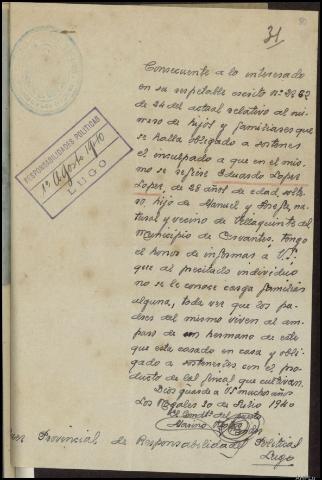 31
Consecuente a lo interesado
en su respetable escrito nº 2262
de 24 del actual relativo al nú-
mero de hijos y familiares que
se halla obligado a sostener
el inculpado a que en el mis-
mo se refiere Eduardo Lopez
Lopez, de 26 años de edad, solte-
ro, hijo de Manuel y Josefa, na-
tural y vecino de Villaquinte del
Municipio de Cervantes. Tengo
el honor de informar a V.S.
que al precitado individuo
no se le conoce carga familiar
alguna, toda vez que los pa-
dres del mismo viven al am-
paro de un hermano de este
que esta casado en casa y obli-
gado a sostenerles con el pro-
ducto de las fincas que cultivan.
Dios guarde a VS muchos años
Los Nogales 30 de Julio 1940
El Comdte del puesto
RESPONSABILIDADES POLITICAS
1º Agosto 1940
LUGO
Juez Provincial de Responsabilidades Politicas
Lugo